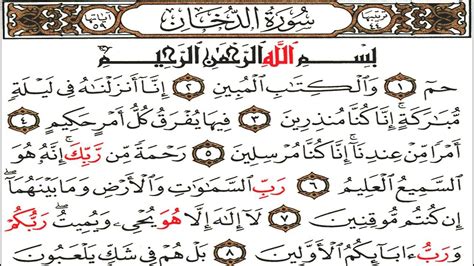 آياتها ٥٩ سُورَةُ الدُّخَانِ ترتيبها ٤٤
بِسْمِ اللَّهِ الرَّحْمَٰنِ الرَّحِيمِ
حمٓ ١ وَالْكِتَابِ الْمُبِينِ ٢ إِنَّا أَنزَلْنَاهُ فِي لَيْلَةٍ
مُّبَارَكَةٍ ۚ إِنَّا كُنَّا مُنذِرِينَ ٣ فِيهَا يُفْرَقُ كُلُّ أَمْرٍ حَكِيمٍ ٤
أَمْرًا مِّنْ عِندِنَا ۚ إِنَّا كُنَّا مُرْسِلِينَ ٥ رَحْمَةً مِّن رَّبِّكَ ۚ إِنَّهُ هُوَ
السَّمِيعُ الْعَلِيمُ ٦ رَبِّ السَّمَاوَاتِ وَالْأَرْضِ وَمَا بَيْنَهُمَا ۖ
إِن كُنتُم مُّوقِنِينَ ٧ لَا إِلَٰهَ إِلَّا هُوَ يُحْيِي وَيُمِيتُ ۖ رَبُّكُمْ
وَرَبُّ ءَابَائِكُمُ الْأَوَّلِينَ ٨ بَلْ هُمْ فِي شَكٍّ يَلْعَبُونَ